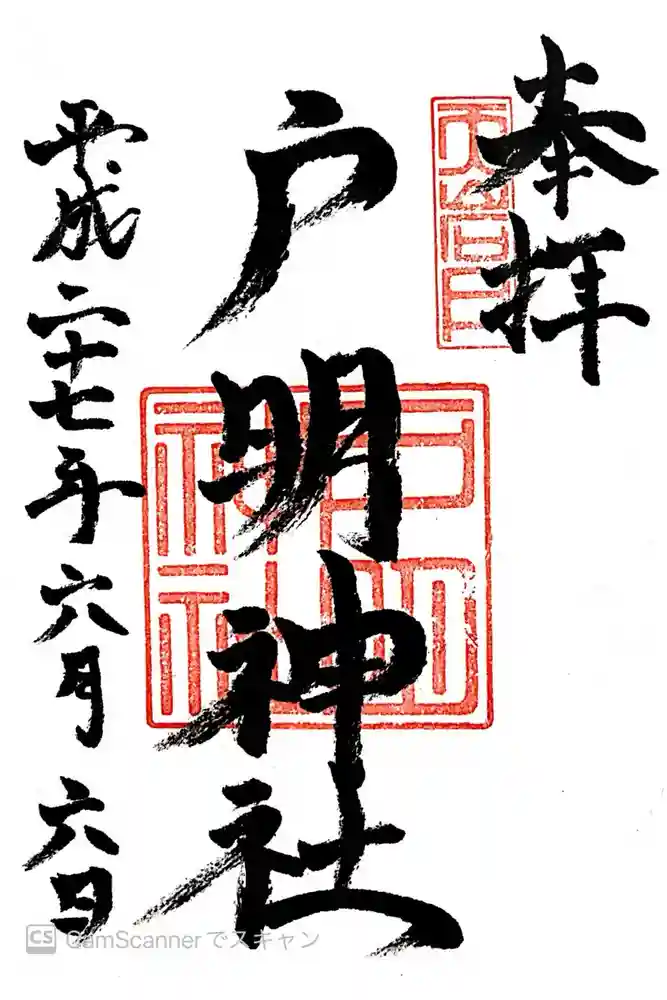 奉拝
天岩戸
戸明神社
戸明
神社
平成二十七年六月六日
CS CamScannerでスキャン